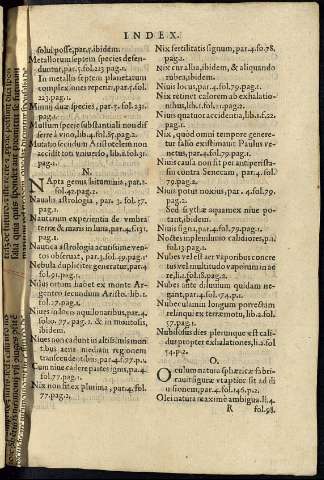 INDEX.
solui posse, par. 5. ibidem.
Metallorum septem species defen
duntur, par. 5. fol. 223. pag. 1.
In metallis septem planetarum
complexiones reperiri, par. 5. fol.
223. pag. 1.
species, par. 5. fol. 231.
pag. 1.
Mustum specie substantiali non dif
ferre à vino, lib. 4. fol. 57. pag. 2.
Mutatio secundum Aristotelem non
accidit toti vniuerso, lib. 2. fol. 31.
pag. 2.
N.
NApta genus bituminis, par. 2.
fol. 42. pag. 2.
Naualis astrologia, par. 3. fol. 57.
pag. 1.
Nautarum experientia de vmbra
terræ & maris in luna, par. 4. f. 131.
pag. 1.
Nautica astrologia acutissime ven
tos obseruat, par. 3. fol. 49. pag. 1
Nebula dupliciter generatur, par. 4
fol. 91. pag. 1.
Nilus ortum habet ex monte Ar-
genteo secundum Aristot. lib. 1.
fol. 27. pag. 1.
Niues in locis aquilonaribus, par. 4.
fol. 77. pag. 2. & in montosis,
ibidem.
Niues non cadunt in altissimis mon
tibus aeris mediam regionem
transcendentibus, par. 4. fo. 77. pa. 2.
Cum niue cadere partes ignis, pa. 4
fol. 77. pag. 1.
Nix non sit ex pluuia, par. 4. fol.
77. pag. 2.
Nix fertilitatis signum, par. 4. fo. 78.
pag. 2.
Nix cur alba, ibidem, & aliquando
rubea, ibidem.
Niuis locus, par. 4. fol. 79. pag. 1.
Nix retinet calorem ab exhalatio-
nibus, lib. 1. fol. 21. pag. 2.
Niuis quatuor accidentia, lib. 1. f. 22.
pag. 1.
Nix, quod omni tempore genere
tur falso existimauit Paulus ve-
nectus, par. 4. fol. 79. pag. 1.
Niuis causa non sit per antiperista-
sim contra Senecam, par. 4. fol.
79. pag. 2.
Niuis potus noxius, par. 4. fol. 79.
pag. 2.
Sed si sythæ aquam ex niue po-
tant, ibidem.
Niuis signa, par. 4. fol. 79. pag. 2.
Noctes in plenilunio calidiores, p. 1.
fol. 13. pag. 2.
Nubes vel est aer vaporibus concre
tus vel multitudo vaporum in ae
re, li. 2. fol. 38. pag. 2.
Nubes ante diluuium quidam ne-
gant, par. 4. fol. 174. p. 2.
Nube quadam longum porrectam
relinqui ex terræmotu, lib. 2. fol.
57. p. 1.
Nubilosus dies plerumque est cali-
dus propter exhalationes, li. 2. fol
54. p. 2.
O.
OCulum natura sphæricæ fabri-
cauit figuræ vt aptior sit ad di
uisionem, par. 4. fol. 146. p. 2.
Olei natura maxime ambigua. li. 4.
R fol. 98.